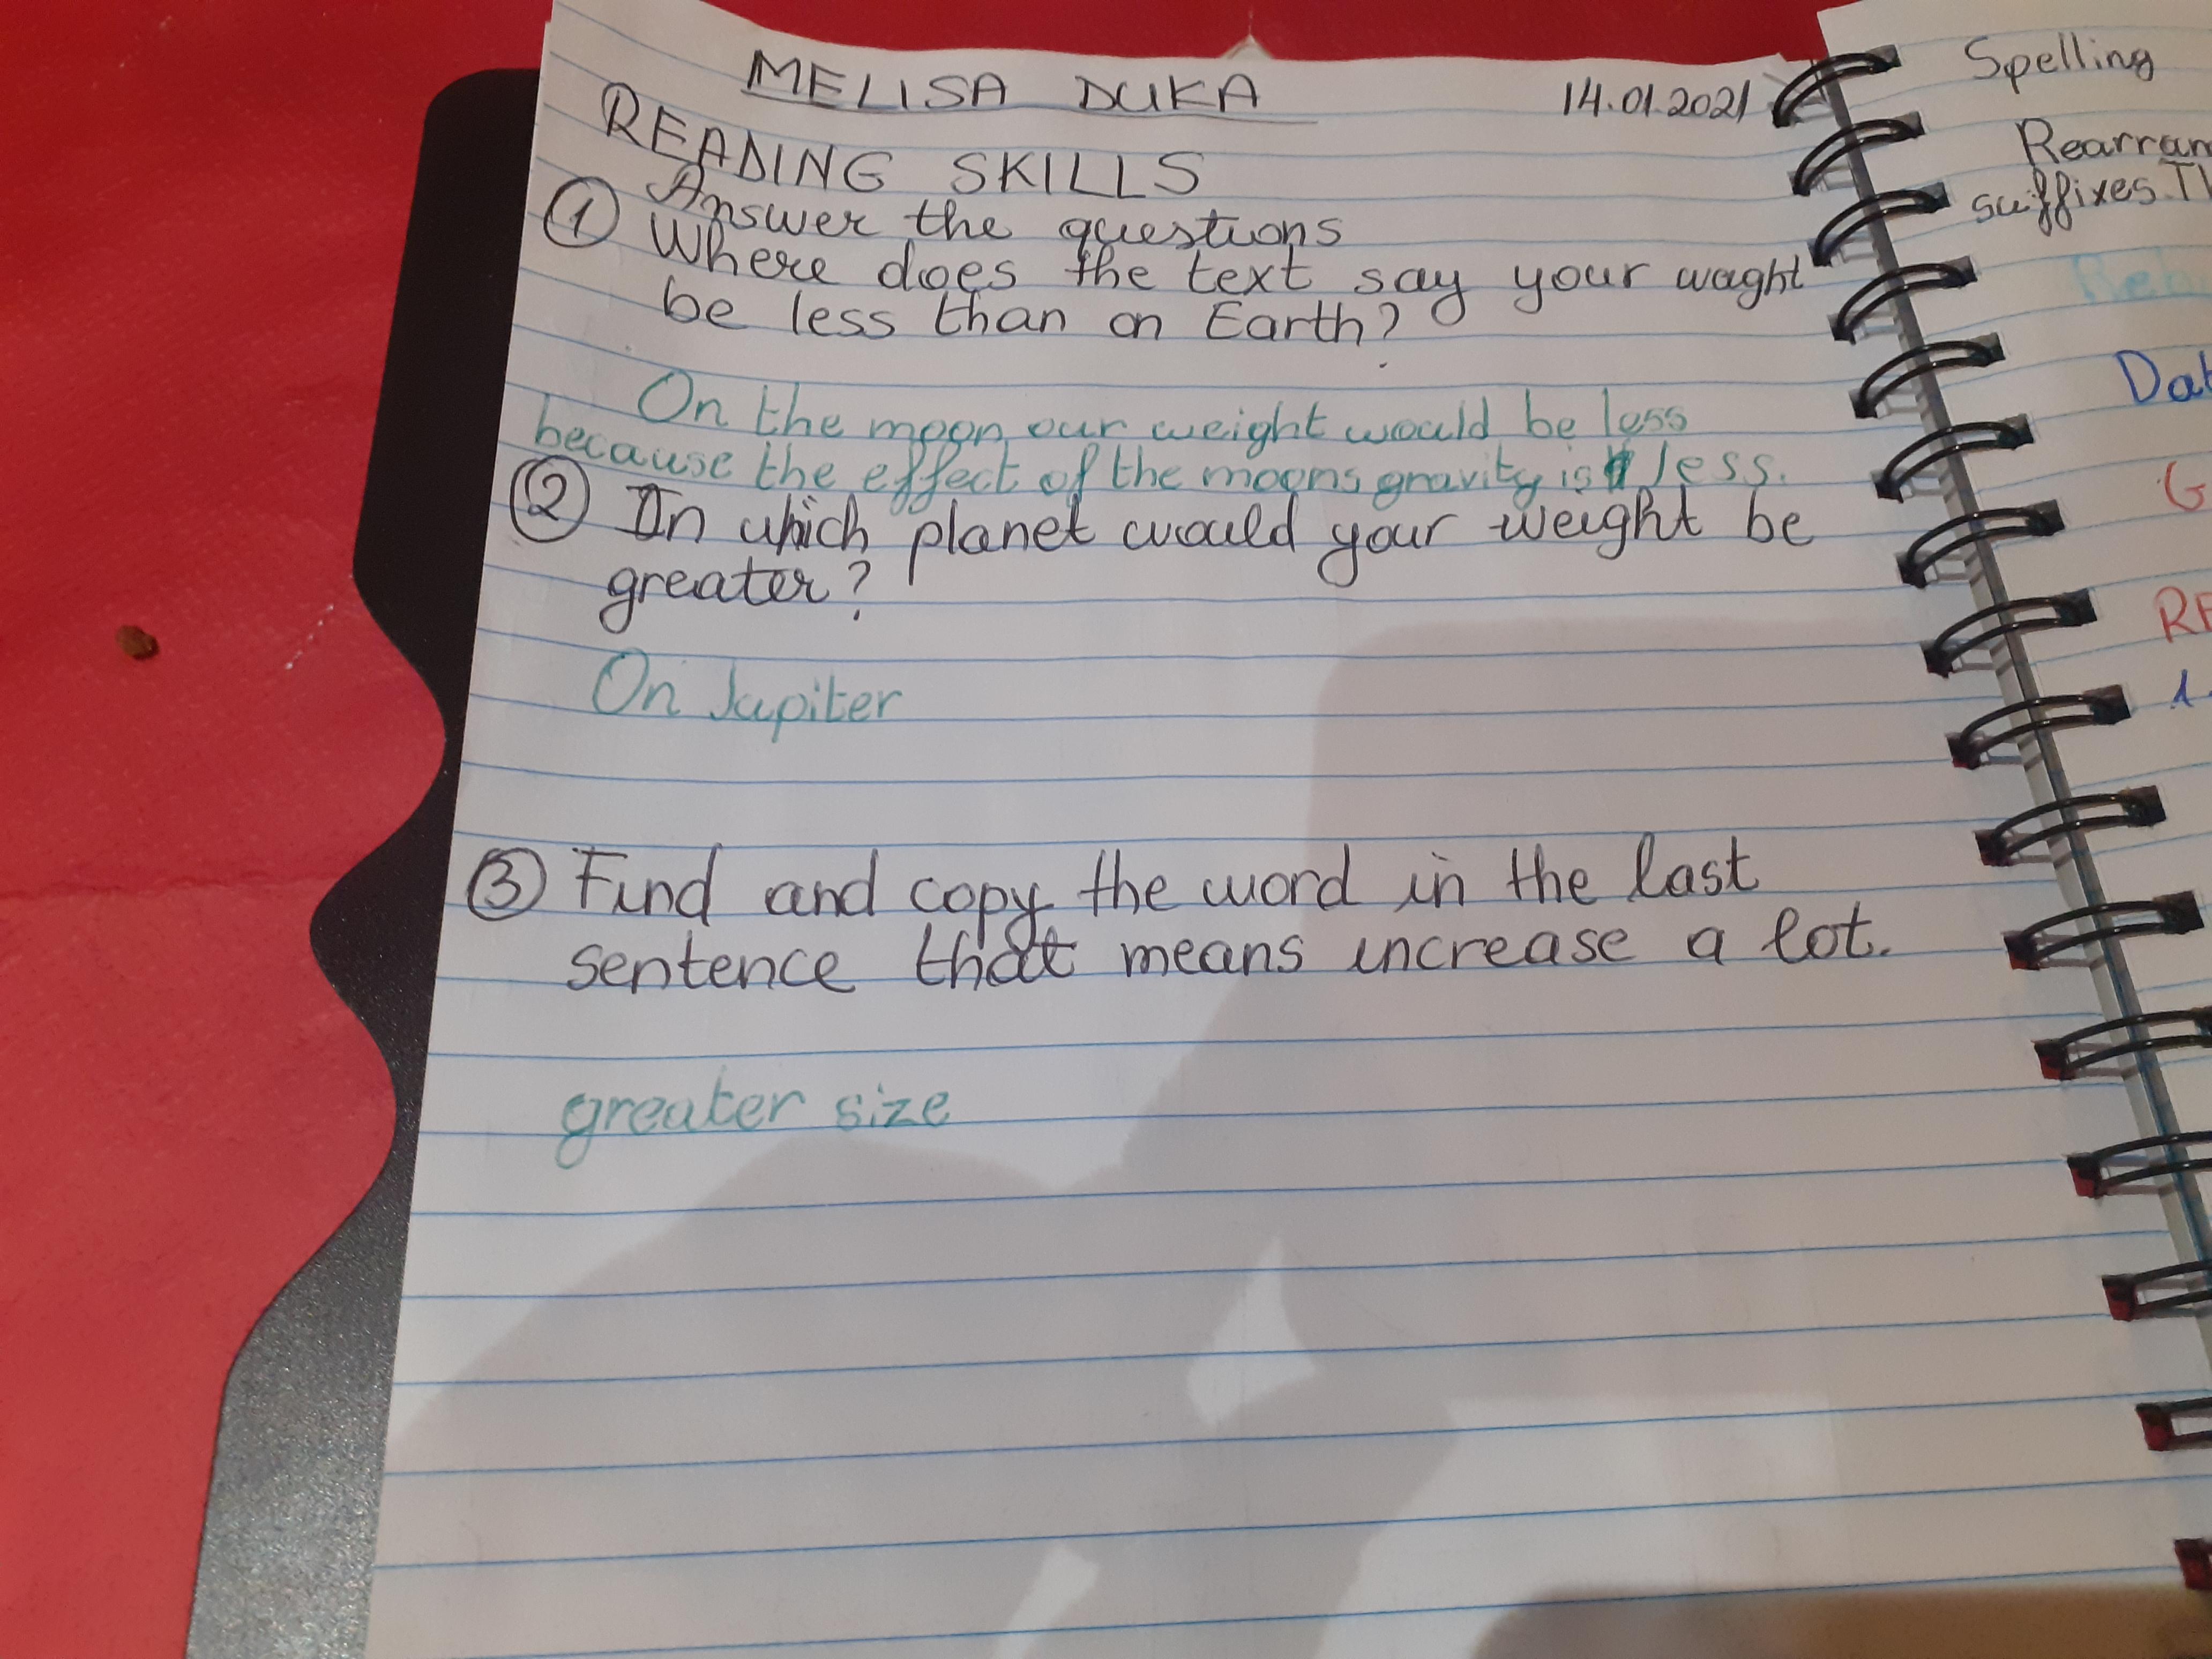 MELISA DUKA
14.01.2021
READING SKILLS
Answer the questions
① Where does the text say your waght
be less than on Earth?
On the moon our weight would be less
because the effect of the moons gravity is less.
② In which planet would your weight be
greater?
On Jupiter
③ Find and copy the word in the last
sentence that means increase a lot.
greater size
Spelling
suffixes.